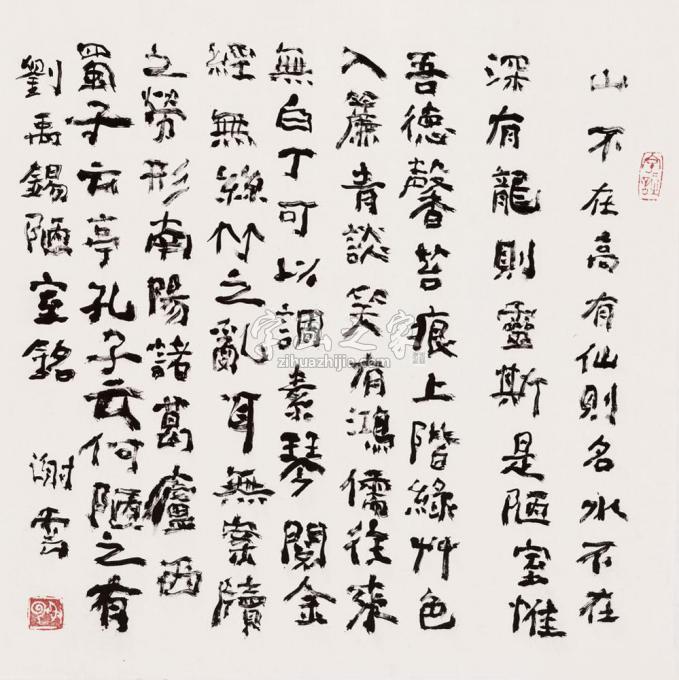 山不在高有仙則名水不在
深有龍則靈斯是陋室惟
吾德馨苔痕上階緑艸色
入簾青談笑有鴻儒往來
無白丁可以調素琴閱金
經無絲竹之亂耳無案牘
之勞形南陽諸葛廬西
蜀子云亭孔子云何陋之有
劉禹錫陋室銘
謝雲
字画之家
zihuazhijia.com